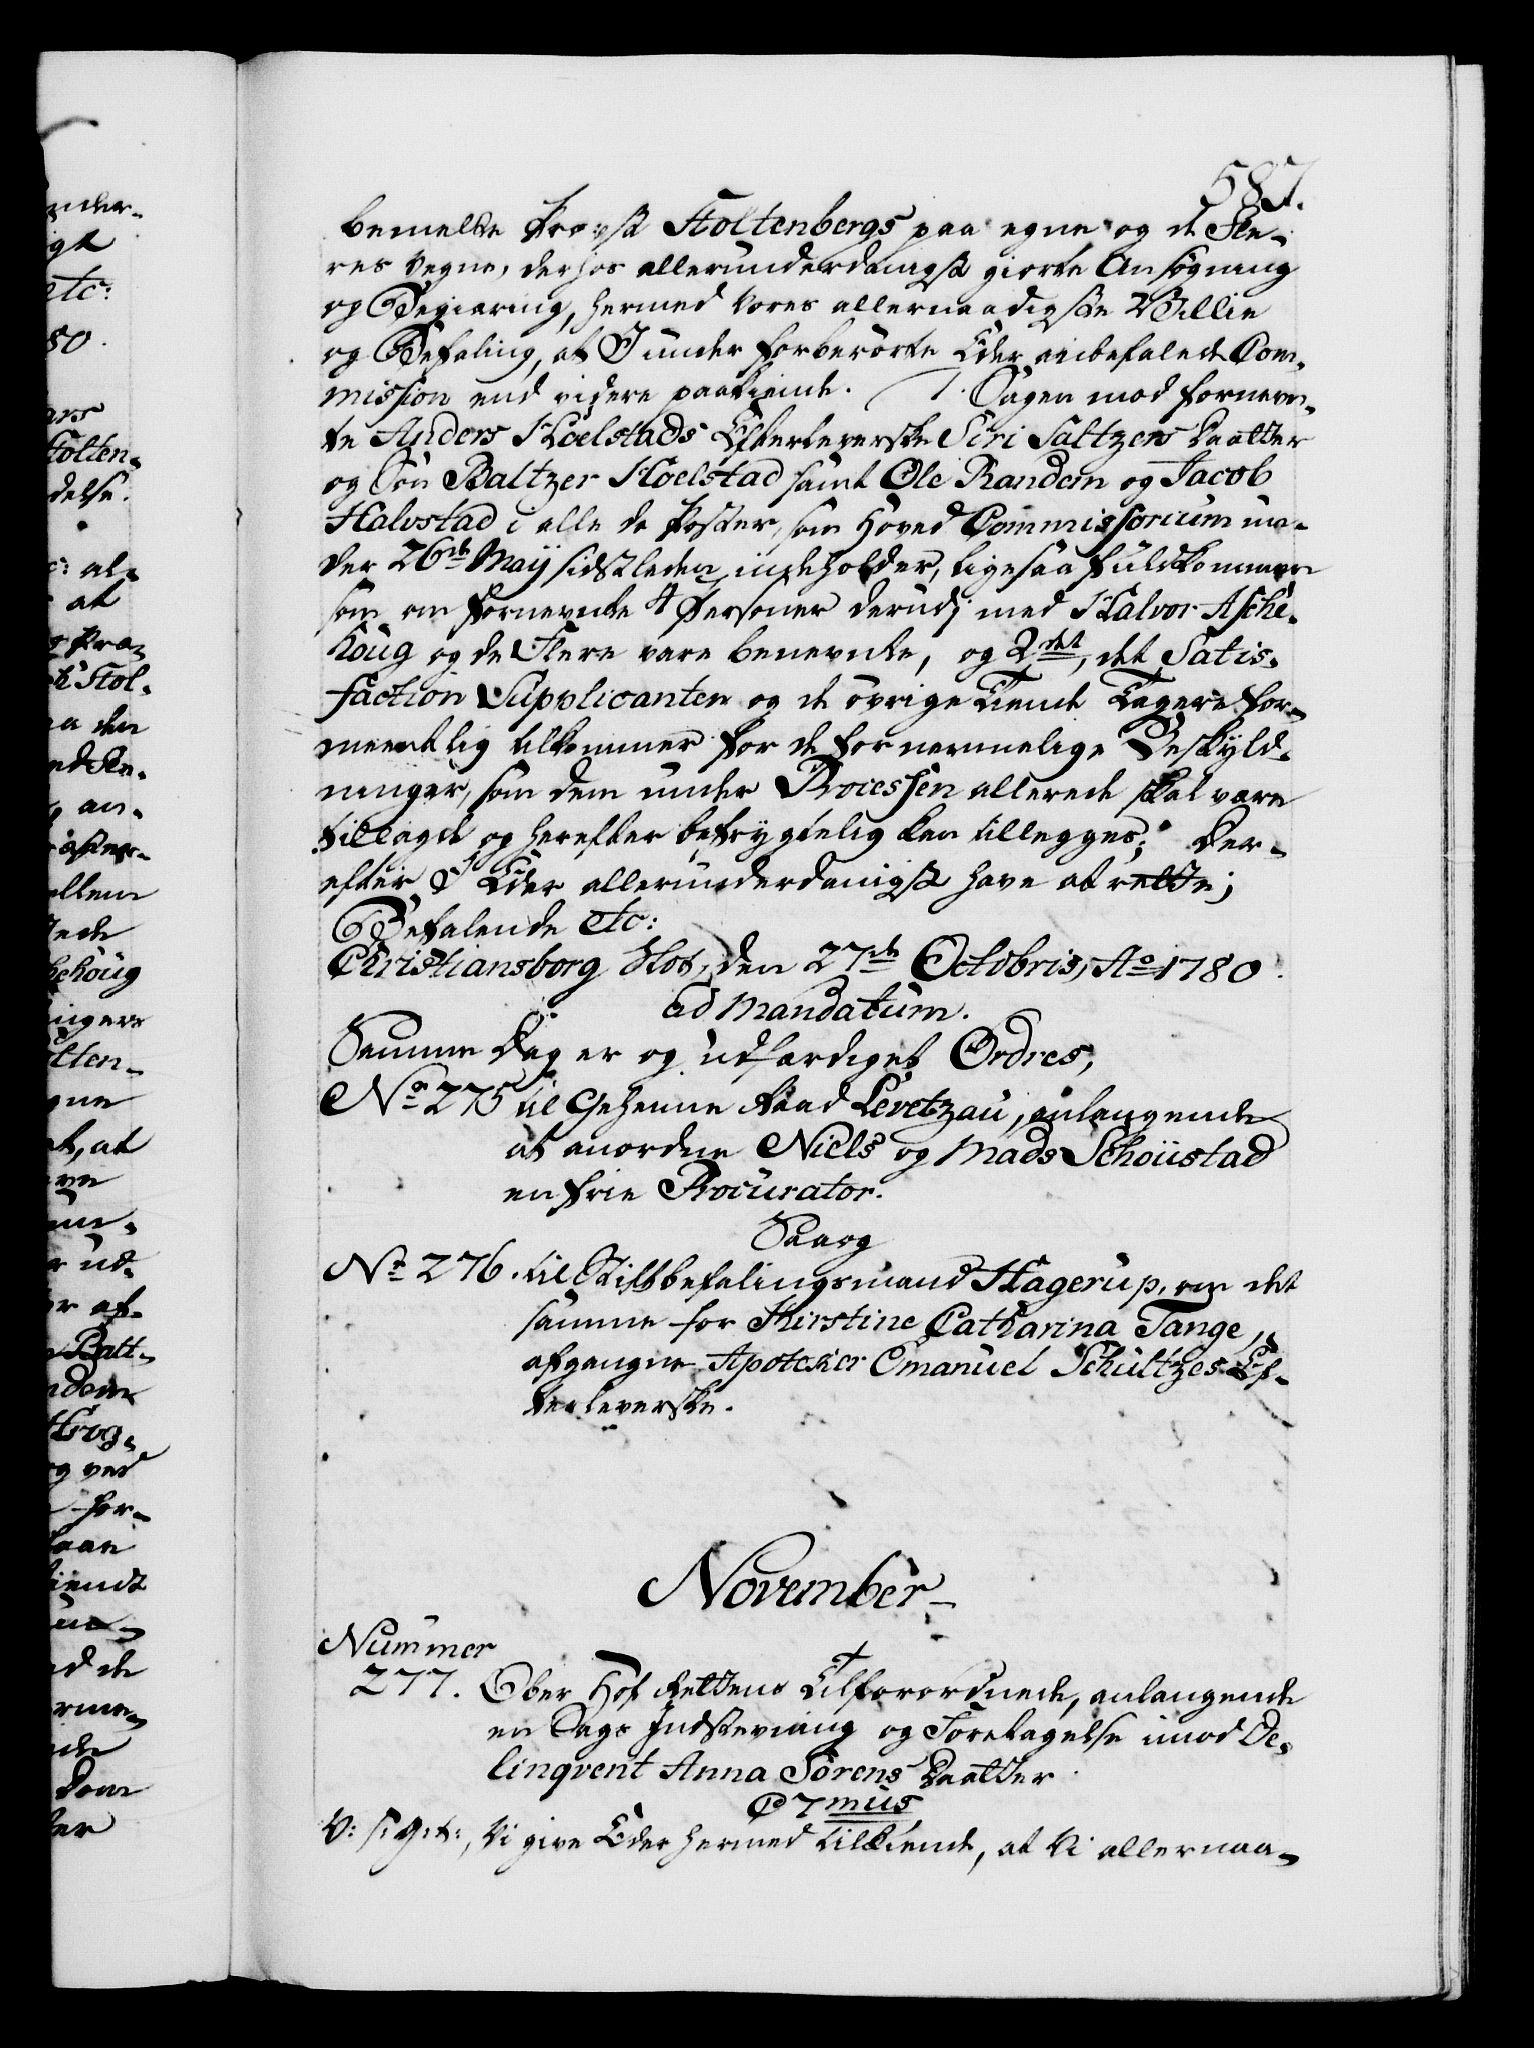 587.
bemelte Provst Stoltenbergs paa egne og de Fle¬
res Vegne, derhos allerunderdanigst giorte Ansøgning
og Begiæring, hermed Vores allernaadigste Villie
og Befaling, at I under forberørte Eder anbefalede Com¬
mission end videre paakiende. 1. Sagen mod fornevn¬
te Anders Koelstads Efterleverske Siri Saltzers Daatter
og Søn Baltzer Koelstad samt Ole Randem og Jacob
Halvstad i alle de Poster, som Hoved Commissorium un¬
der 26de Maij sidstleden indeholder, ligesaa fuldkommen
som om fornevnte 4 Personer derudj med Halvor Asche¬
houg og de Flere vare benevnte, og 2det, det Satis¬
faction Supplicanten og de øvrige Tiende Tagere for¬
meentlig tilkommer for de fornermelige Beskyld¬
ninger, som dem under Processen allerede skal være
tillagt og herefter befrygtelig kan tillegges; Der¬
efter I Eder allerunderdanigst have at rette;
Befalende etc:
Christiansborg Slot, den 27de Octobris, Ao 1780.
ad mandatum.
Samme Dag er og udfærdiget Ordres,
No 275 til Geheime Raad Levetzau, anlangende
at anordne Niels og Mads Schoustad
en frie Procurator.
Saa og
No 276. til Stiftbefalingsmand Hagerup, om det
samme for Kirstine Catharina Tange,
afgangne Apoteker Emanuel Schultzes Ef¬
terleverske.
November
Nummer
277. Ober Hof Rettens Tilforordnede, anlangende
en Sags Indstevning og Foretagelse imod De¬
linqvent Anna Sørens Daatter
C 7mus
V: s: G: t:, Vi give Eder hermed tilkiende, at Vi allernaa¬